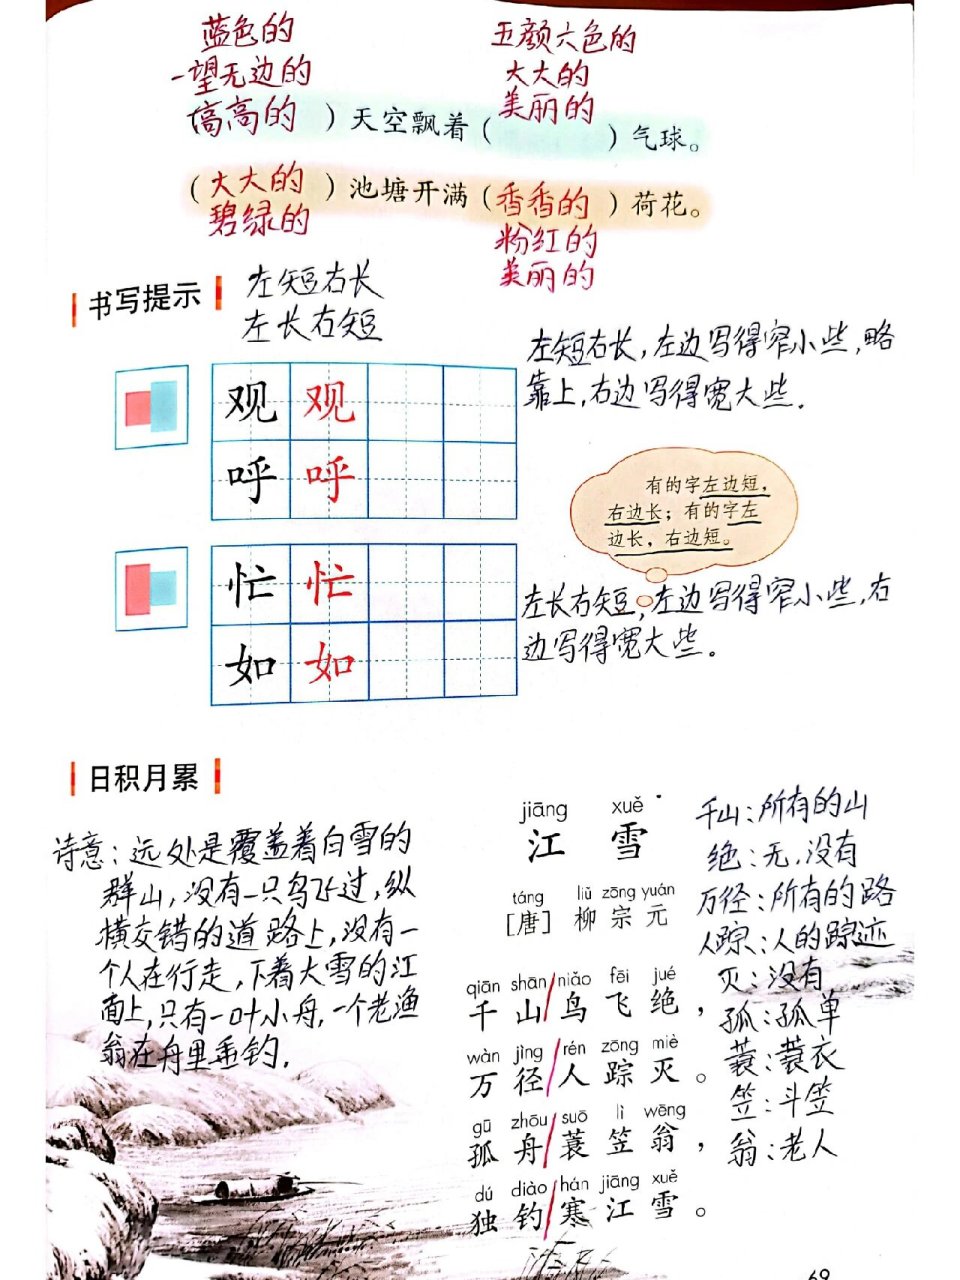 蓝色的
一望无边的
高高的
五颜六色的
大大的
美丽的
）天空飘着（ ）气球。
（大大的）池塘开满（香香的）荷花。
碧绿的
粉红的
美丽的
书写提示
左短右长
左长右短
左短右长,左边写得窄小些,略
靠上,右边写得宽大些.
观 观
呼 呼
有的字左边短,
右边长；有的字左
边长，右边短。
忙 忙
如 如
左长右短,左边写得窄小些,右
边写得宽大些。
日积月累
诗意：远处是覆盖着白雪的
群山,没有一只鸟飞过,纵
横交错的道路上,没有一
个人在行走,下着大雪的江
面上,只有一叶小舟,一个老渔
翁在舟里垂钓.
jiāng xuě
江 雪
táng liǔ zōng yuán
［唐］柳宗元
qiān shān/niǎo fēi jué
千山/鸟飞绝，
wàn jìng/rén zōng miè
万径/人踪灭。
gū zhōu/suō lì wēng
孤舟/蓑笠翁，
dú diào/hán jiāng xuě
独钓/寒江雪。
千山：所有的山
绝：无,没有
万径：所有的路
人踪：人的踪迹
灭：没有
孤：孤单
蓑：蓑衣
笠：斗笠
翁：老人
69